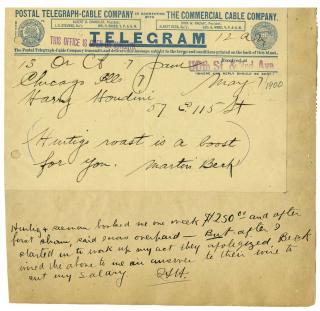 POSTAL TELEGRAPH-CABLE COMPANY. IN CONNECTION WITH THE COMMERCIAL CABLE COMPANY.
TELEGRAM
THIS OFFICE IS
The Postal Telegraph-Cable Company transmits and delivers this message subject to the terms and conditions printed on the back of this blank.
Received at
(WHERE ANY REPLY SHOULD BE SENT.)
Chicago Ills 7 May 7 1900
Harry Houdini
57 E 115 St
Huntigs roast is a boost
for you. Martin Beck
booked me one week $1250 00 and after
first show, said I was overpaid — But after I
started in to work up my act they apologized, Beck
wired the above to me an answer to their wire to
cut my Salary HH